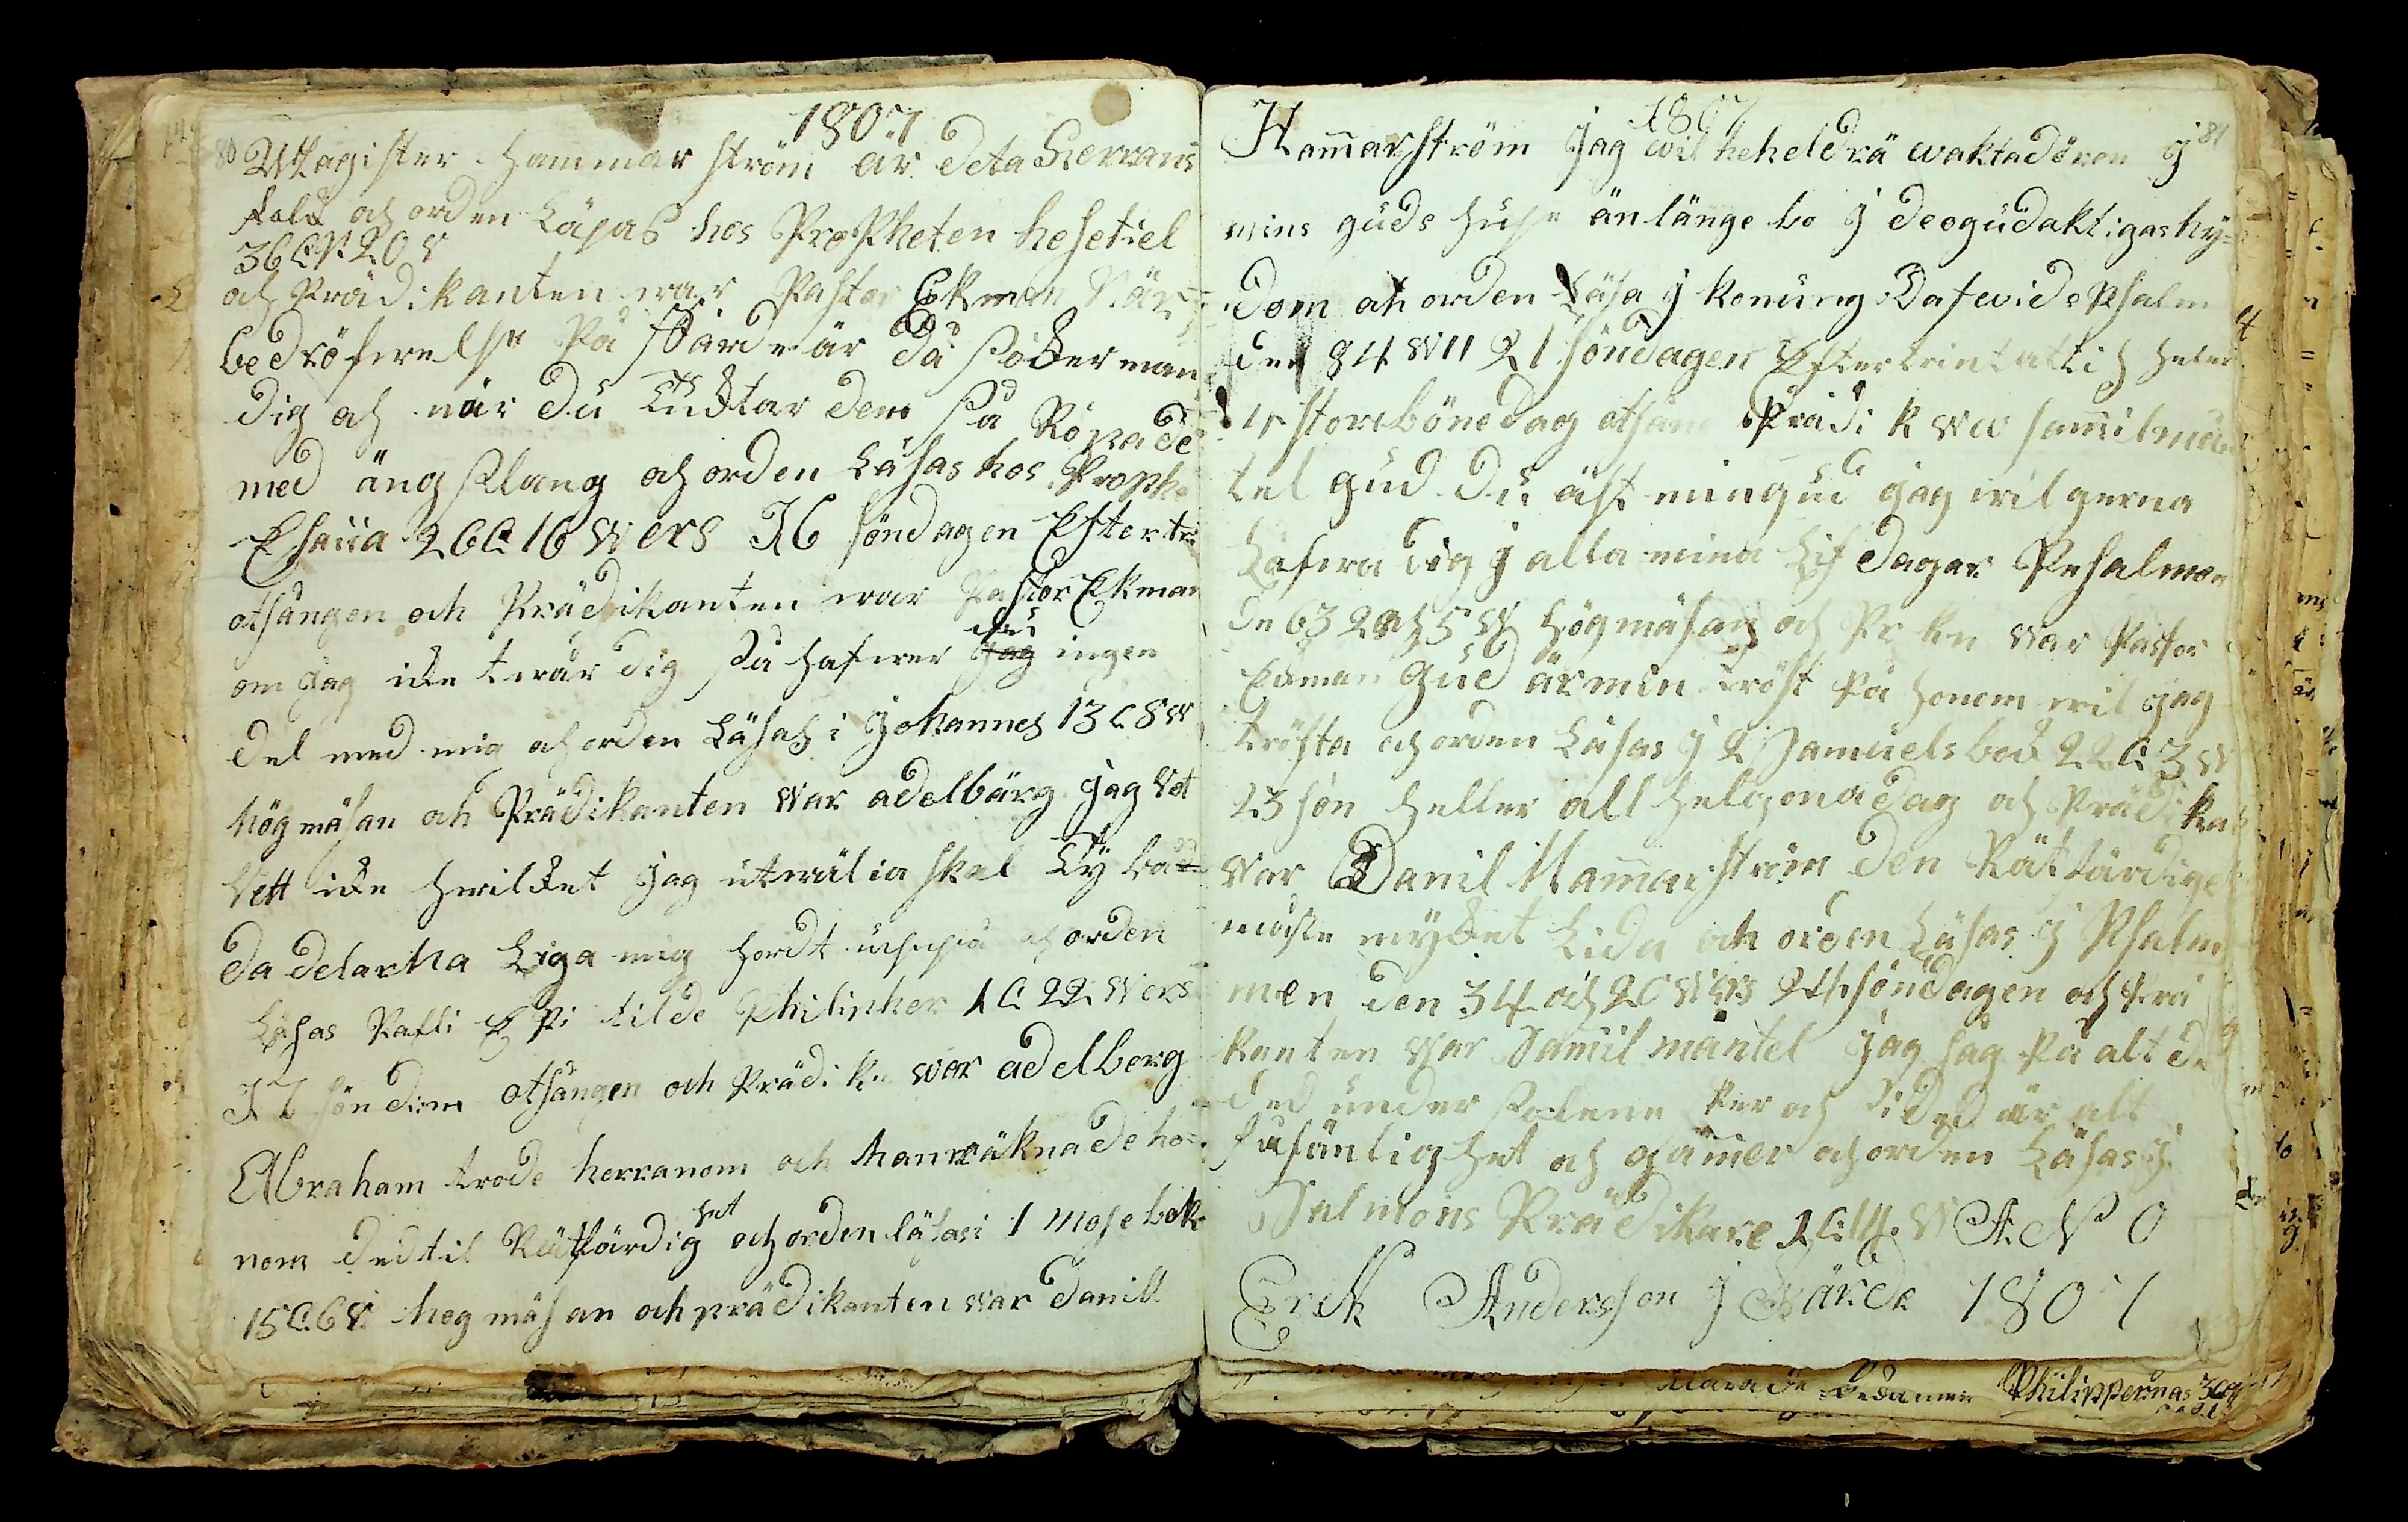 1807
80 Magister Hammar ström är deta Herrans
folk och orden Läsas hos Propheten hesekiel
36 C V 20 v
och Prädikanten war Pastor Ekman När
bedröfwelse På färde är Då söker man
dig och när du tucktar dem så Ropa de
med ängslang och orden Läsas hos Prophe
Esaiia 26 C 16 wers 16 söndagen Efter tr
otsången och Prädikanten war Pastor Ekman
du
om jag icke twår dig så hafwer jag ingen
del med mig och orden Läsas i Johannes 13 C 8 w
högmäsan och Prädikanten war adelbärg jag Vet
Vett icke hwilcket jag utwälia skal Ty bå
da delarna Liga mig hordt uppå och orden
Läsas Pafli Epi til de Philipher 1 C 22 wers
17 söndom otsången och Prädikn war adelberg
Abraham trode herranom och han räknade ho=
het
nom ded til Rätfärdig och orden läsas i 1 Mose bok
15 C 6 V högmäsan och prädikanten war Daniel
1807
81
Hammarström Jag wil heheldrä wakta dören j
mins guds huse än länge bo j de ogudaktigas hy=
dom och orden Läsa j konung Dafwids Psalm
den 84 w 11 21 söndagen Efter trintattis heler
4 stora bönedag otsån Prädik w Samuil man
tel gud du äst min gud jag wil gerna
Lofwa dig j alla mina Lif dagar Psalmon
de 63 2 och 5 w Högmäsan och Pr kn war Pastor
Ekman Gud är min tröst På honom wil jag
trösta och orden Läsas j 2 Samuels bok 22 C 3 w
23 sön heller all helgona dag och Prädikan
war Danil Hammarström den Rätfärdige
måste mycket Lida och orden Läsas j Psalm
men den 34 och 20 wers 24 söndagen och Prä
kanten war Samuil mantel Jag såg På alt de
ded under solene sker och si ded är alt
fåfänlighet och jämer och orden Läsas j
Salmons Prädikare 1 C 14 w A N O
Erik Andersson j Wärda 1807
Philippernas 3